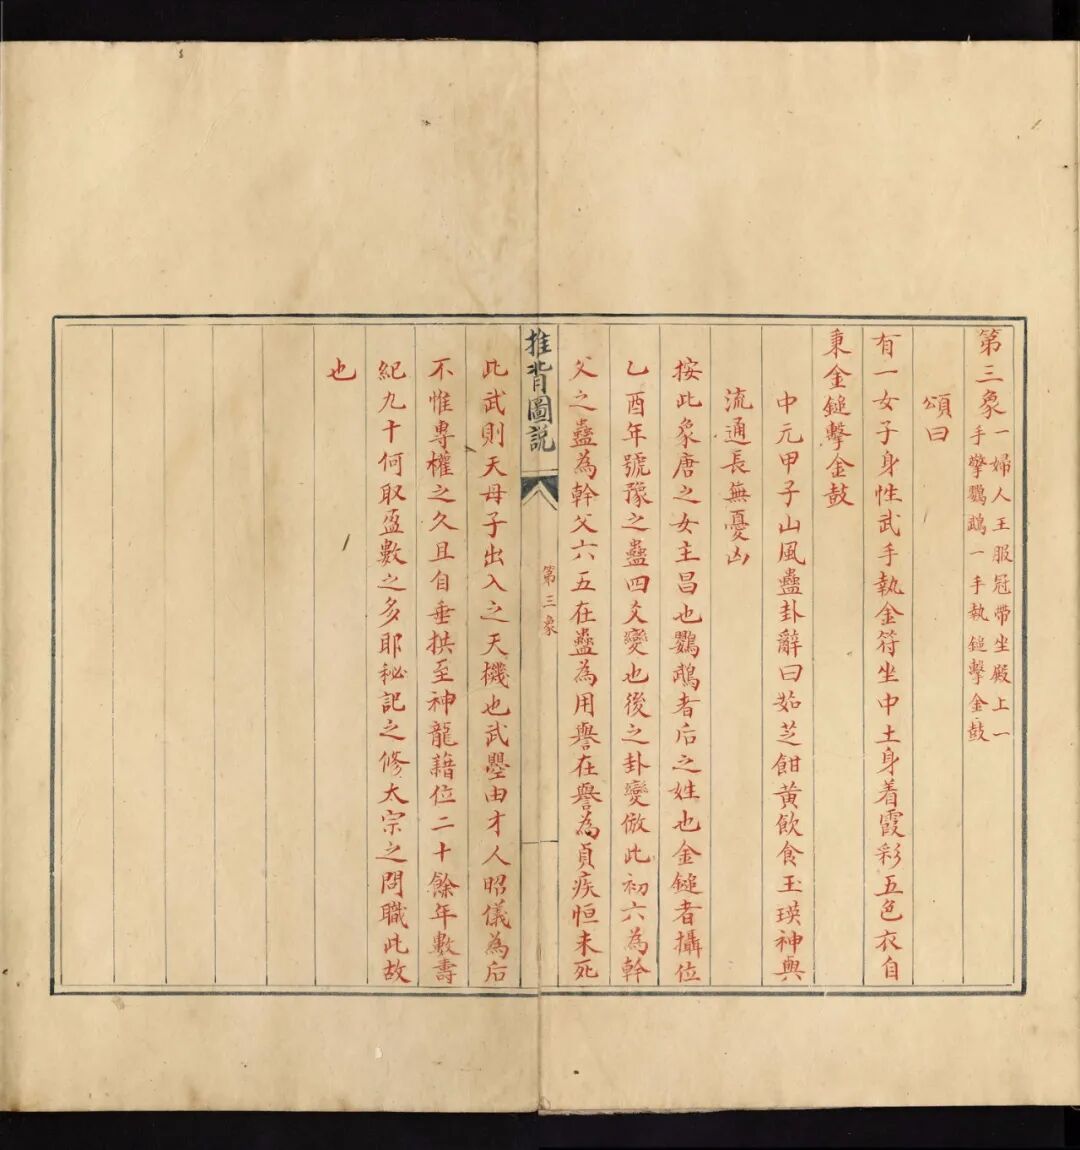 第三象一婦人王服冠帶坐殿上一
手擎鸚鵡一手執鎚擊金鼓
頌曰
有一女子身性武手執金符坐中土身着霞彩五色衣自
秉金鎚擊金鼓
中元甲子山風蠱卦辭曰茹芝飷黄飲食玉瑛神與
流通長無憂凶
按此象唐之女主昌也鸚鵡者后之姓也金鎚者攝位
乙酉年號豫之蠱四爻變也後之卦變倣此初六為幹
父之蠱為幹父六五在蠱為用譽在譽為貞疾恒未死
推背圖説
第三象
此武則天母子出入之天機也武曌由才人昭儀為后
不惟專權之久且自垂拱至神龍藉位二十餘年數壽
紀九十何取盈數之多耶秘記之修太宗之問職此故
也